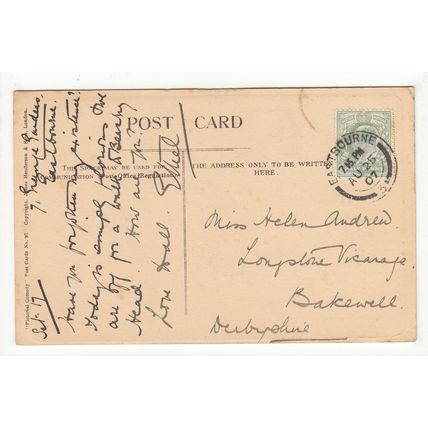 POST CARD
THE ADDRESS ONLY TO BE WRITTEN
HERE.
THIS SPACE MAY BE USED FOR
COMMUNICATION Post Office Regulation
"Pictorial Comedy" Post Cards No. Copyright. Henderson & London.
EASTBOURNE
7.15 PM
AU 25
07
7, Grange Gardens,
Eastbourne.
Sat. 17
Have you forgotten my existence?
Today is simply glorious. We
are off for a walk to Beachy
Head. How are you?
Love to all. Ethel
Miss Helen Andrew.
Longstone Vicarage
Bakewell.
Derbyshire